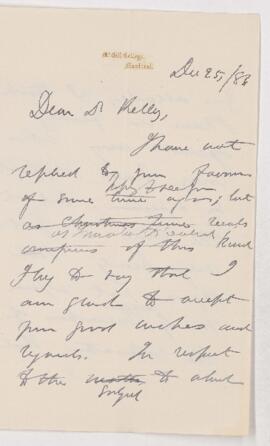 McGill College,
Montreal.
Dec 25, /88
Dear Dr Kelly,
I have not
replied to your favour
of some time ago; but
as Christmas time recalls
of this kind
I beg to say that I
am glad to accept
your good wishes and
regards. In respect
to the matter to which
subject